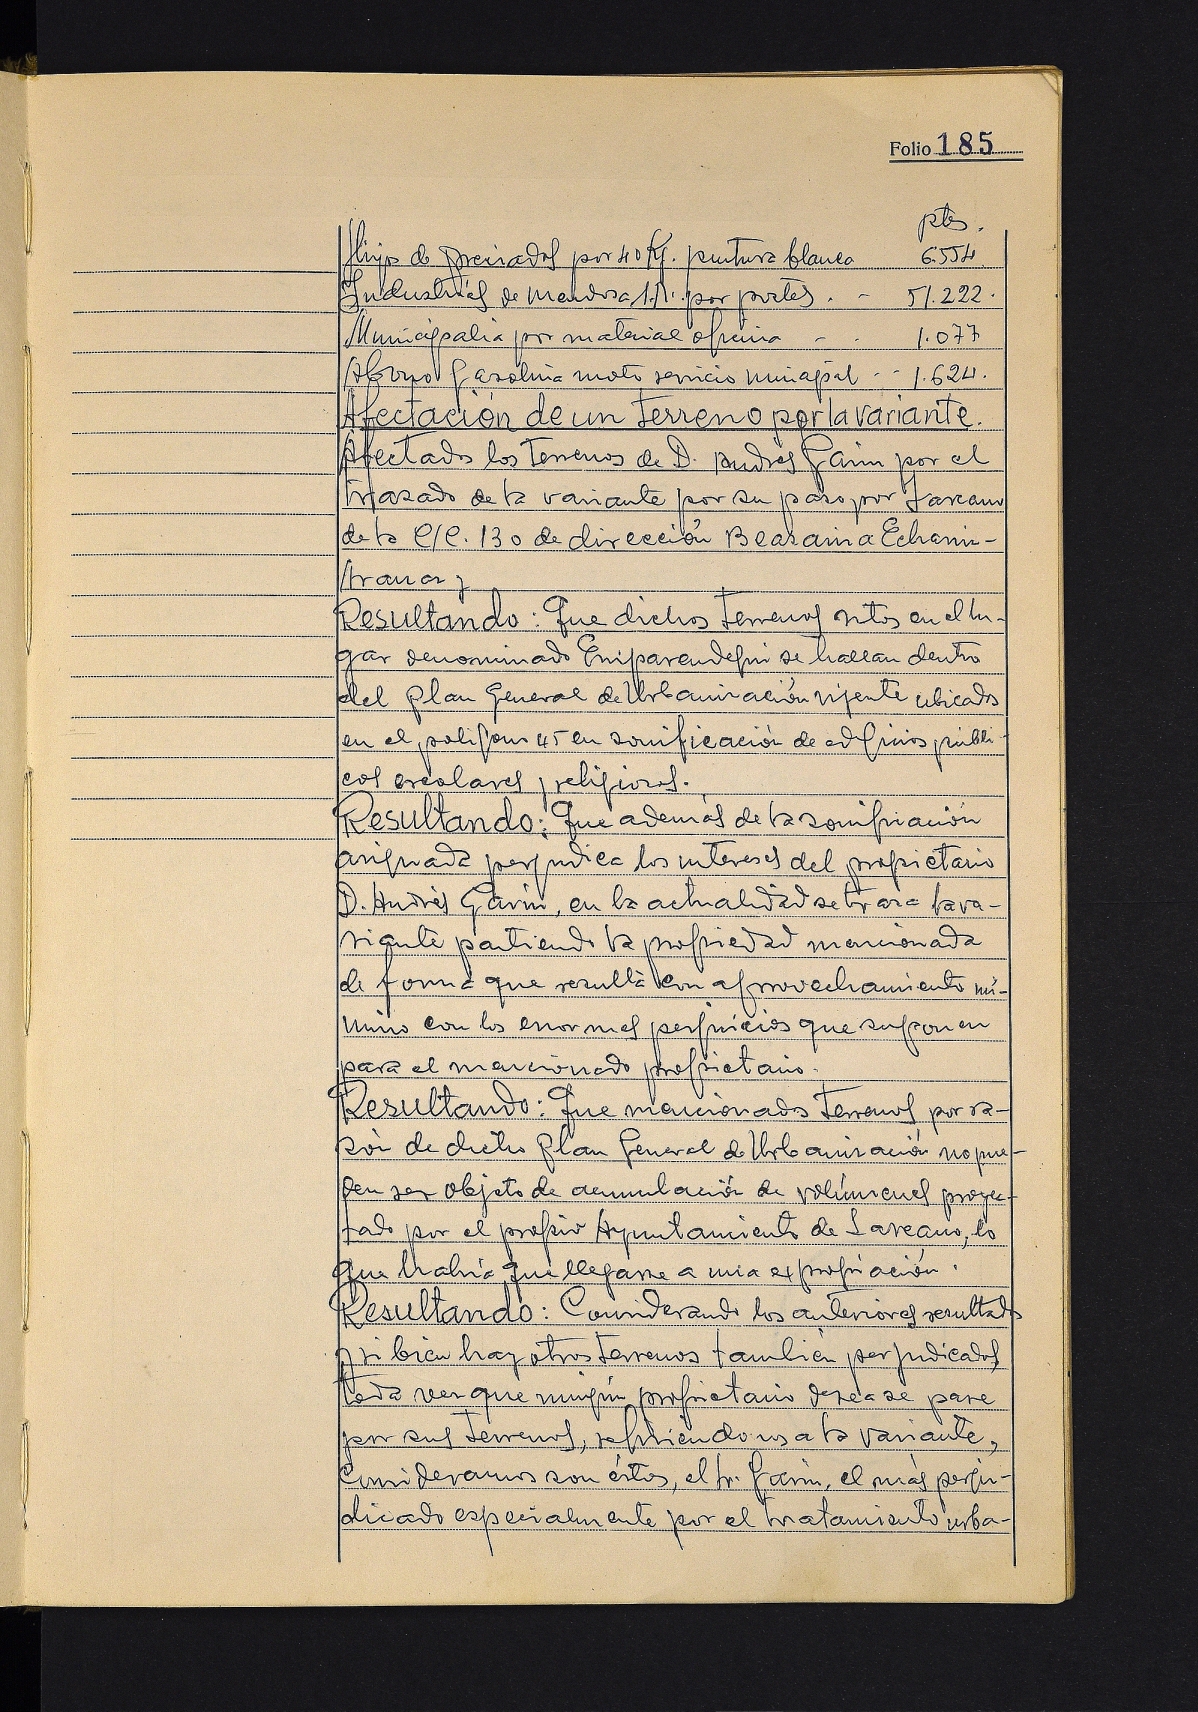 Folio 185
ptas.
Hijos de Preciados por 40 Kg. pintura blanca 6.554
Industrias de Mendoza, S.A. por portes. - 51.222.
Municipalia por material oficina - . 1.077
Abono Gasolina moto servicio municipal - - 1.624.
Afectación de un terreno por la variante.
Afectados los terrenos de D. Andrés Garin por el
trazado de la variante por su paso por Lazcano
de la C/C. 130 de dirección Beasain a Echarri-
Aranaz y
Resultando: Que dichos terrenos sitos en el lu-
gar denominado se hallan dentro
del Plan General de Urbanización vijente ubicados
en el poligono 45 en zonificación de edificios públi-
cos escolares y religiosos.
Resultando: Que además de la zonificación
asignada perjudica los intereses del propietario
D. Andrés Garin, en la actualidad se traza la va-
riante partiendo la propiedad mencionada
de forma que resulta con aprovechamiento mí-
nimo con los enormes perjuicios que suponen
para el mencionado propietario.
Resultando: Que mencionados terrenos por ra-
zón de dicho Plan General de Urbanización no pue-
den ser objeto de acumulación de volúmenes proyec-
tado por el propio Ayuntamiento de Lazcano, lo
que habría que llegarse a una expropiación.
Resultando: Considerando los anteriores resultados
y si bien hay otros terrenos también perjudicados
toda vez que ningún propietario desea se pase
por sus terrenos, refiriendonos a la variante,
Consideramos son éstos, el Sr. Garin, el más perju-
dicado especialmente por el tratamiento urba-